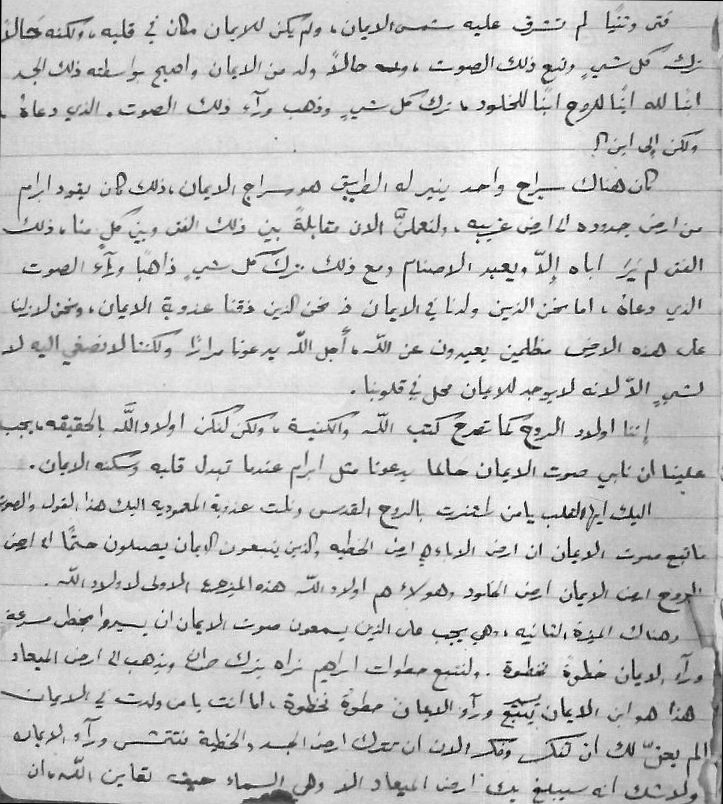 فتى وثنيًا لم تشرق عليه شمس الايمان، ولم يكن للايمان مكان في قلبه، ولكنه حالاً
ترك كل شيءٍ وتبع ذلك الصوت، حالاً ولد من الايمان واصبح بواسطته ذلك الجسد
ابنًا لله ابنًا للروح ابنًا للخلود، ترك كل شيءٍ وذهب ورآء ذلك الصوت. الذي دعاهُ،
ولكن إلى اين؟!
كان هناك سراج واحد ينير له الطريق هو سراج الايمان، ذلك كان يقود ابرام
من ارض جدوده الى ارض غريبه، ولنعملنَّ الان مقابلةً بين ذلك الفتى وبين كلٍ منا، ذلك
الفتى لم يَرَ اباه إلاّ ويعبد الاصنام ومع ذلك ترك كل شيءٍ ذاهبًا ورآء الصوت
الذي دعاهُ، اما نحن الذين ولدنا في الايمان نحن الذين ذقنا عذوبة الايمان، ونحن لازلنا
على هذه الارض مظلمين بعيدون عن اللّه، أجل اللّه يدعونا مرارًا ولكننا لا نصغي اليه لا
لشيءٍ الاّ لانه لا يوجد للايمان محل في قلوبنا.
إننا اولاد الروح كما تصرح كتب اللّه والكنيسة، ولكن لنكن اولاد اللَّه بالحقيقه، يجب
علينا ان نلبي صوت الايمان حالما يدعونا مثل ابرام عندما تبدل قلبه وسكنه الايمان.
اليك ايها القلب يا من استنرت بالروح القدس ونلت عذوبة المعموديه اليك هذا القول والصوت
ما تبع صوت الايمان ان ارض الاباء هي ارض الخطيه والذين يتبعون الايمان يصلون حتمًا الى ارض
الروح ارض الايمان ارض الخلود وهولاء هم اولاد اللّه هذه الميزة الاولى لاولاد اللّه.
وهناك الميزة الثانيه، وهي يجب على الذين يسمعون صوت الايمان ان يسيروا بخطى سريعة
ورآء الايمان خطوةً فخطوة. ولنتبع خطوات ابراهيم نراه يترك حران ويذهب الى ارض الميعاد
هذا هو ابن الايمان يتبع ورآء الايمان خطوةً فخطوة، اما انت يا من ولدت في الايمان
الم يحنّ لك ان تفكر وفكر الان ان تترك ارض الجسد والخطية لتتمشى ورآء الايمان
ولا شك انه سيبلغ بك ارض الميعاد الا وهي السماء حيث تعاين اللّه، ان